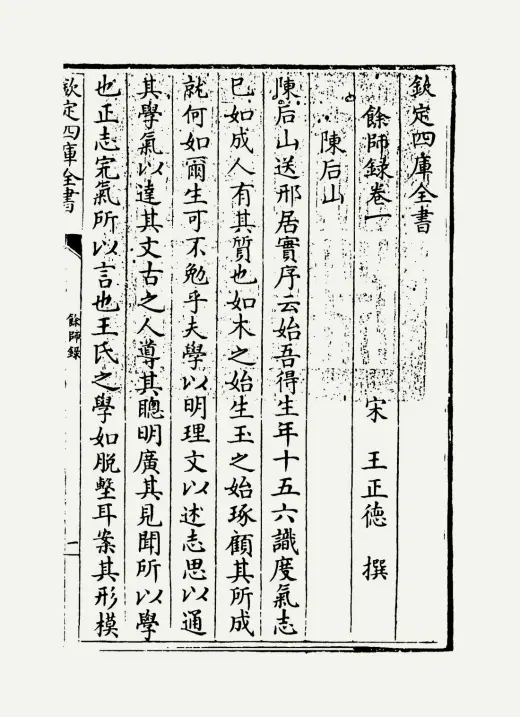 欽定四庫全書
餘師録卷一
宋 王正德 撰
陳后山
陳后山送邢居實序云始吾得生年十五六識度氣志
已如成人有其質也如木之始生玉之始琢顧其所成
就何如爾生可不勉乎夫學以明理文以述志思以通
其學氣以達其文古之人導其聰明廣其見聞所以學
也正志完氣所以言也王氏之學如脱墼耳案其形模
欽定四庫全書
餘師録
一